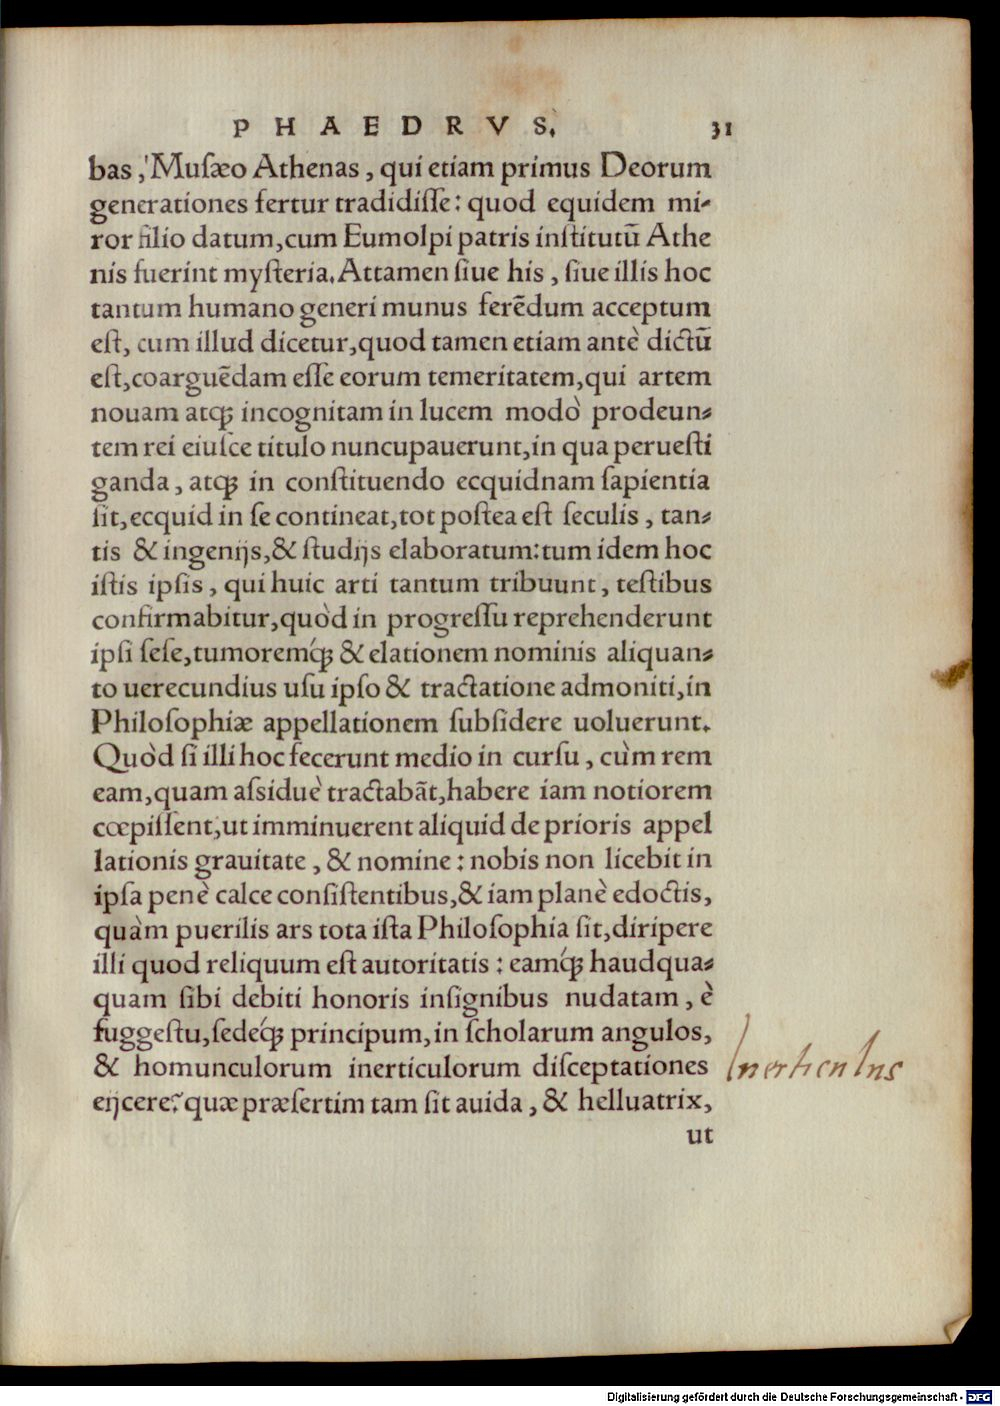 PHAEDRVS. 31
bas, Musæo Athenas, qui etiam primus Deorum
generationes fertur tradidiſſe: quod equidem mi-
ror filio datum, cum Eumolpi patris inſtitutū Athe
nis fuerint myſteria. Attamen ſiue his, ſiue illis hoc
tantum humano generi munus ferēdum acceptum
eſt, cum illud dicetur, quod tamen etiam antè dictū
eſt, coarguēdam eſſe eorum temeritatem, qui artem
nouam atq; incognitam in lucem modò prodeun-
tem rei eiuſce titulo nuncupauerunt, in qua perueſti
ganda, atq; in conſtituendo ecquidnam ſapientia
ſit, ecquid in ſe contineat, tot poſtea eſt ſeculis, tan-
tis & ingenijs, & ſtudijs elaboratum: tum idem hoc
iſtis ipſis, qui huic arti tantum tribuunt, teſtibus
confirmabitur, quòd in progreſſu reprehenderunt
ipſi ſeſe, tumoremq́; & elationem nominis aliquan-
to uerecundius uſu ipſo & tractatione admoniti, in
Philoſophiæ appellationem ſubſidere uoluerunt.
Quòd ſi illi hoc fecerunt medio in curſu, cùm rem
eam, quam aſsiduè tractabāt, habere iam notiorem
cœpiſſent, ut imminuerent aliquid de prioris appel
lationis grauitate, & nomine: nobis non licebit in
ipſa penè calce conſiſtentibus, & iam planè edoctis,
quàm puerilis ars tota iſta Philoſophia ſit, diripere
illi quod reliquum eſt autoritatis: eamq́; haudqua-
quam ſibi debiti honoris inſignibus nudatam, è
ſuggeſtu, ſedeq́; principum, in ſcholarum angulos,
& homunculorum inerticulorum diſceptationes
eijcere? quæ præſertim tam ſit auida, & helluatrix,
ut
Inerticulus
Digitalisierung gefördert durch die Deutsche Forschungsgemeinschaft - DFG